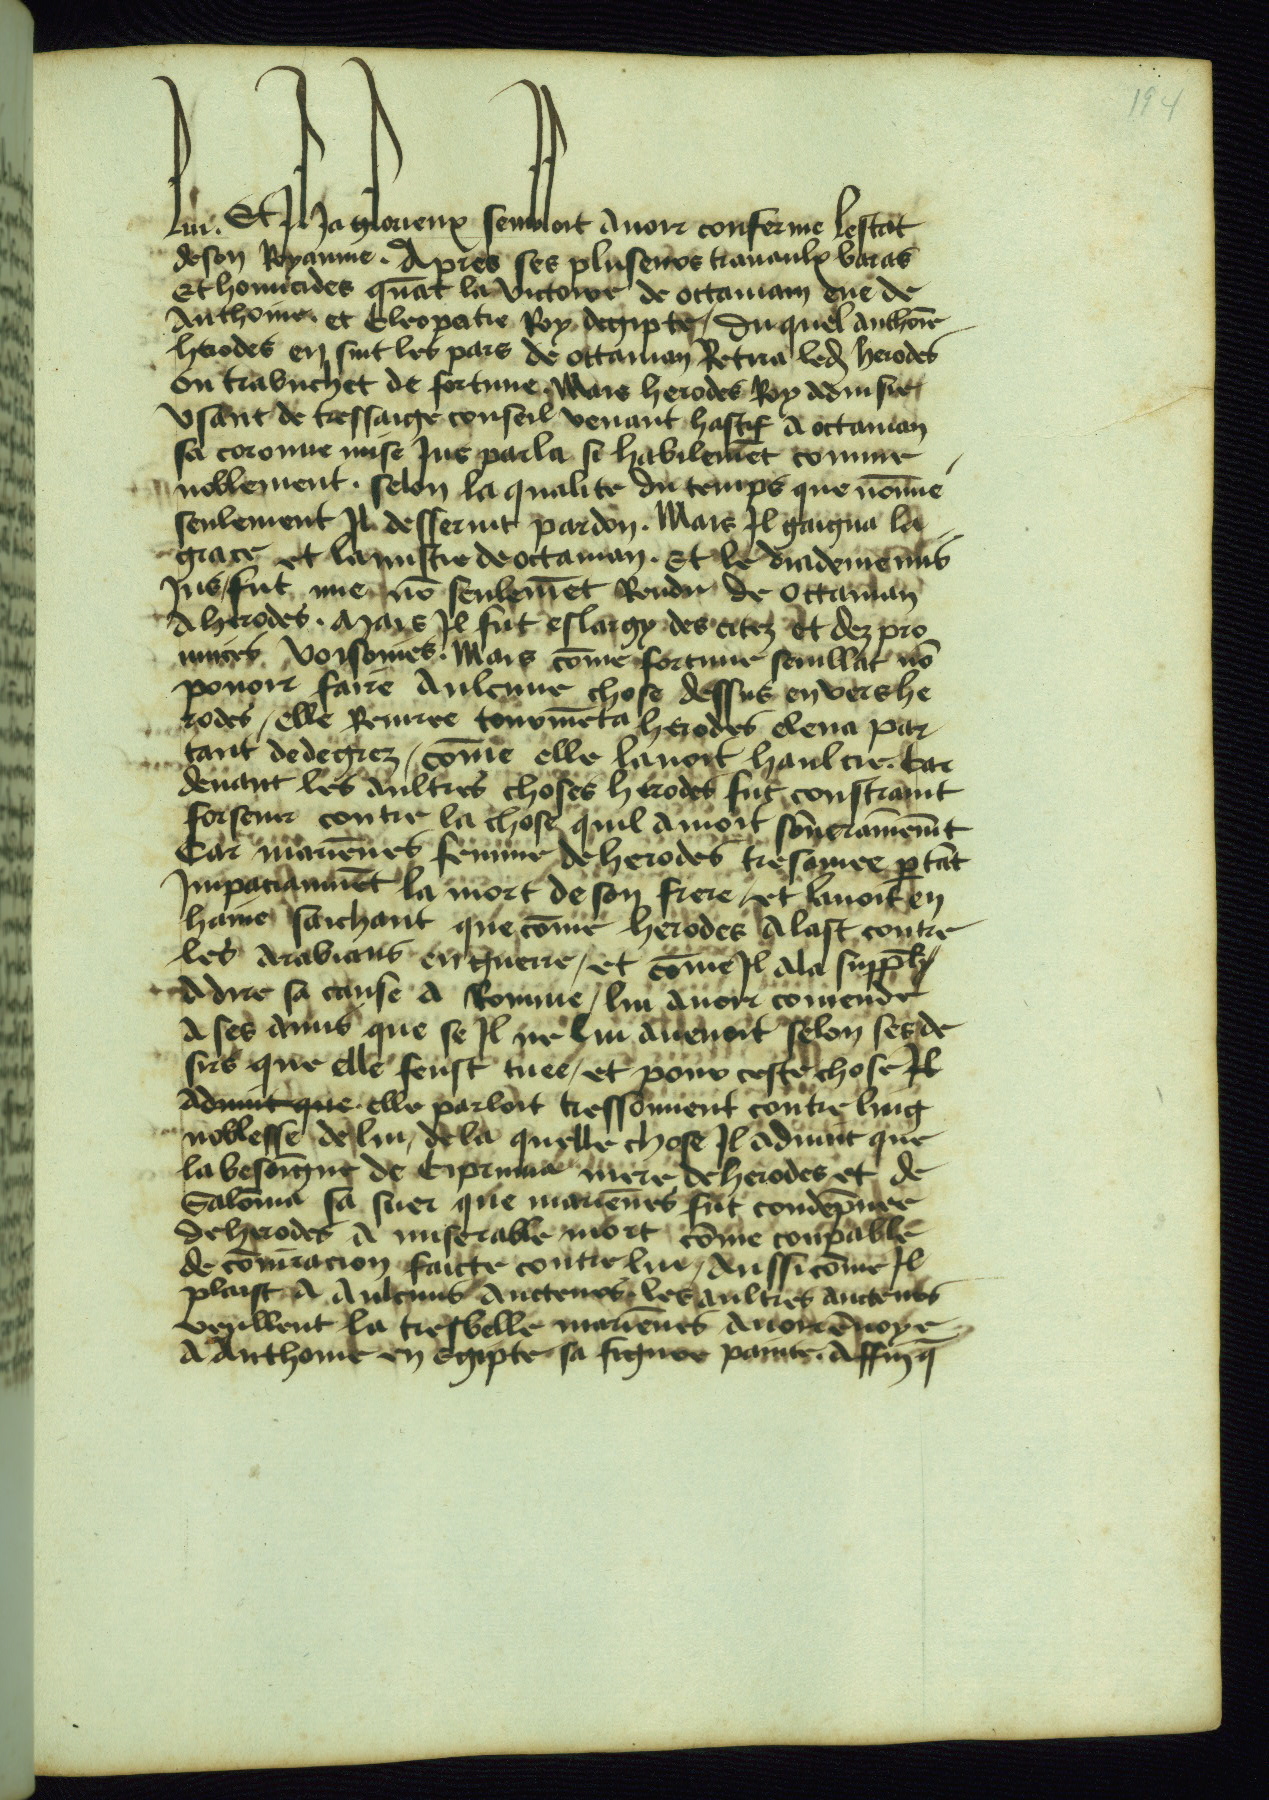 194
lui. Et Il Ja glorieux sembloit auoir conferme lestat
de son Royaume. Apres ses pluseurs trauaulx baras
Et homicides quāt la victoire de octauiam eue de
Anthoine. et Cleopatre Roy degipte / du quel anthoīe
herodes en suit les pars de octauian Retira led herodes
ou trabuchet de fortune. Mais herodes Roy aduisie
vsant de tressaige conseil venant hastif a octauian
sa coronne mise Jus parla si habilemēt comme
noblement. selon la qualite du temps que nōmie
seulement Il desseruit pardon. Mais Il gaigna la
grace et lamistie de octauian. Et le diademe mis
Jus / fut mie nō seulemēt Rendu de octauian
A herodes. Mais Il fut eslargy des citez et dez pro
uinces voisines. Mais cōme fortune semblāt nō
pouoir faire Aulcune chose dessus envers he
rodes / elle Remree tourmēta herodes eleua par
tant dedegrez / cōme elle lauoit haulcie. Car
deuant les aultres choses herodes fut constraint
forsener contre la chose quil amoit souerainemēt
Car mariēnes femme de herodes tresamee ptāt
Impaciammēt la mort de son frere / et lauoit en
haine saichant que cōme herodes alast contre
les arabians en guerre / et cōme Il ala
A dire sa cause a Romme / lui auoir comende
A ses amis que se Il ne lui auenoit selon ses de
sirs que elle feust tuee / et pour ceste chose Il
aduint que elle parloit tressouuent contre ling
noblesse de lui / dela quelle chose Il aduint que
la besoingne de Ciprinna mere de herodes et de
Saloma sa suer que mariēnes fut condēpnee
de herodes A miserable mort cōme coupable
de cōiuracion faicte contre lui / Aussi cōme Il
plaist A Aulcuns Aucteurs. les aultres aucteurs
veullent la tresbelle mariēnes Auoir ēuoye
A Anthoine en Egipte sa figure painte. Affin q̄